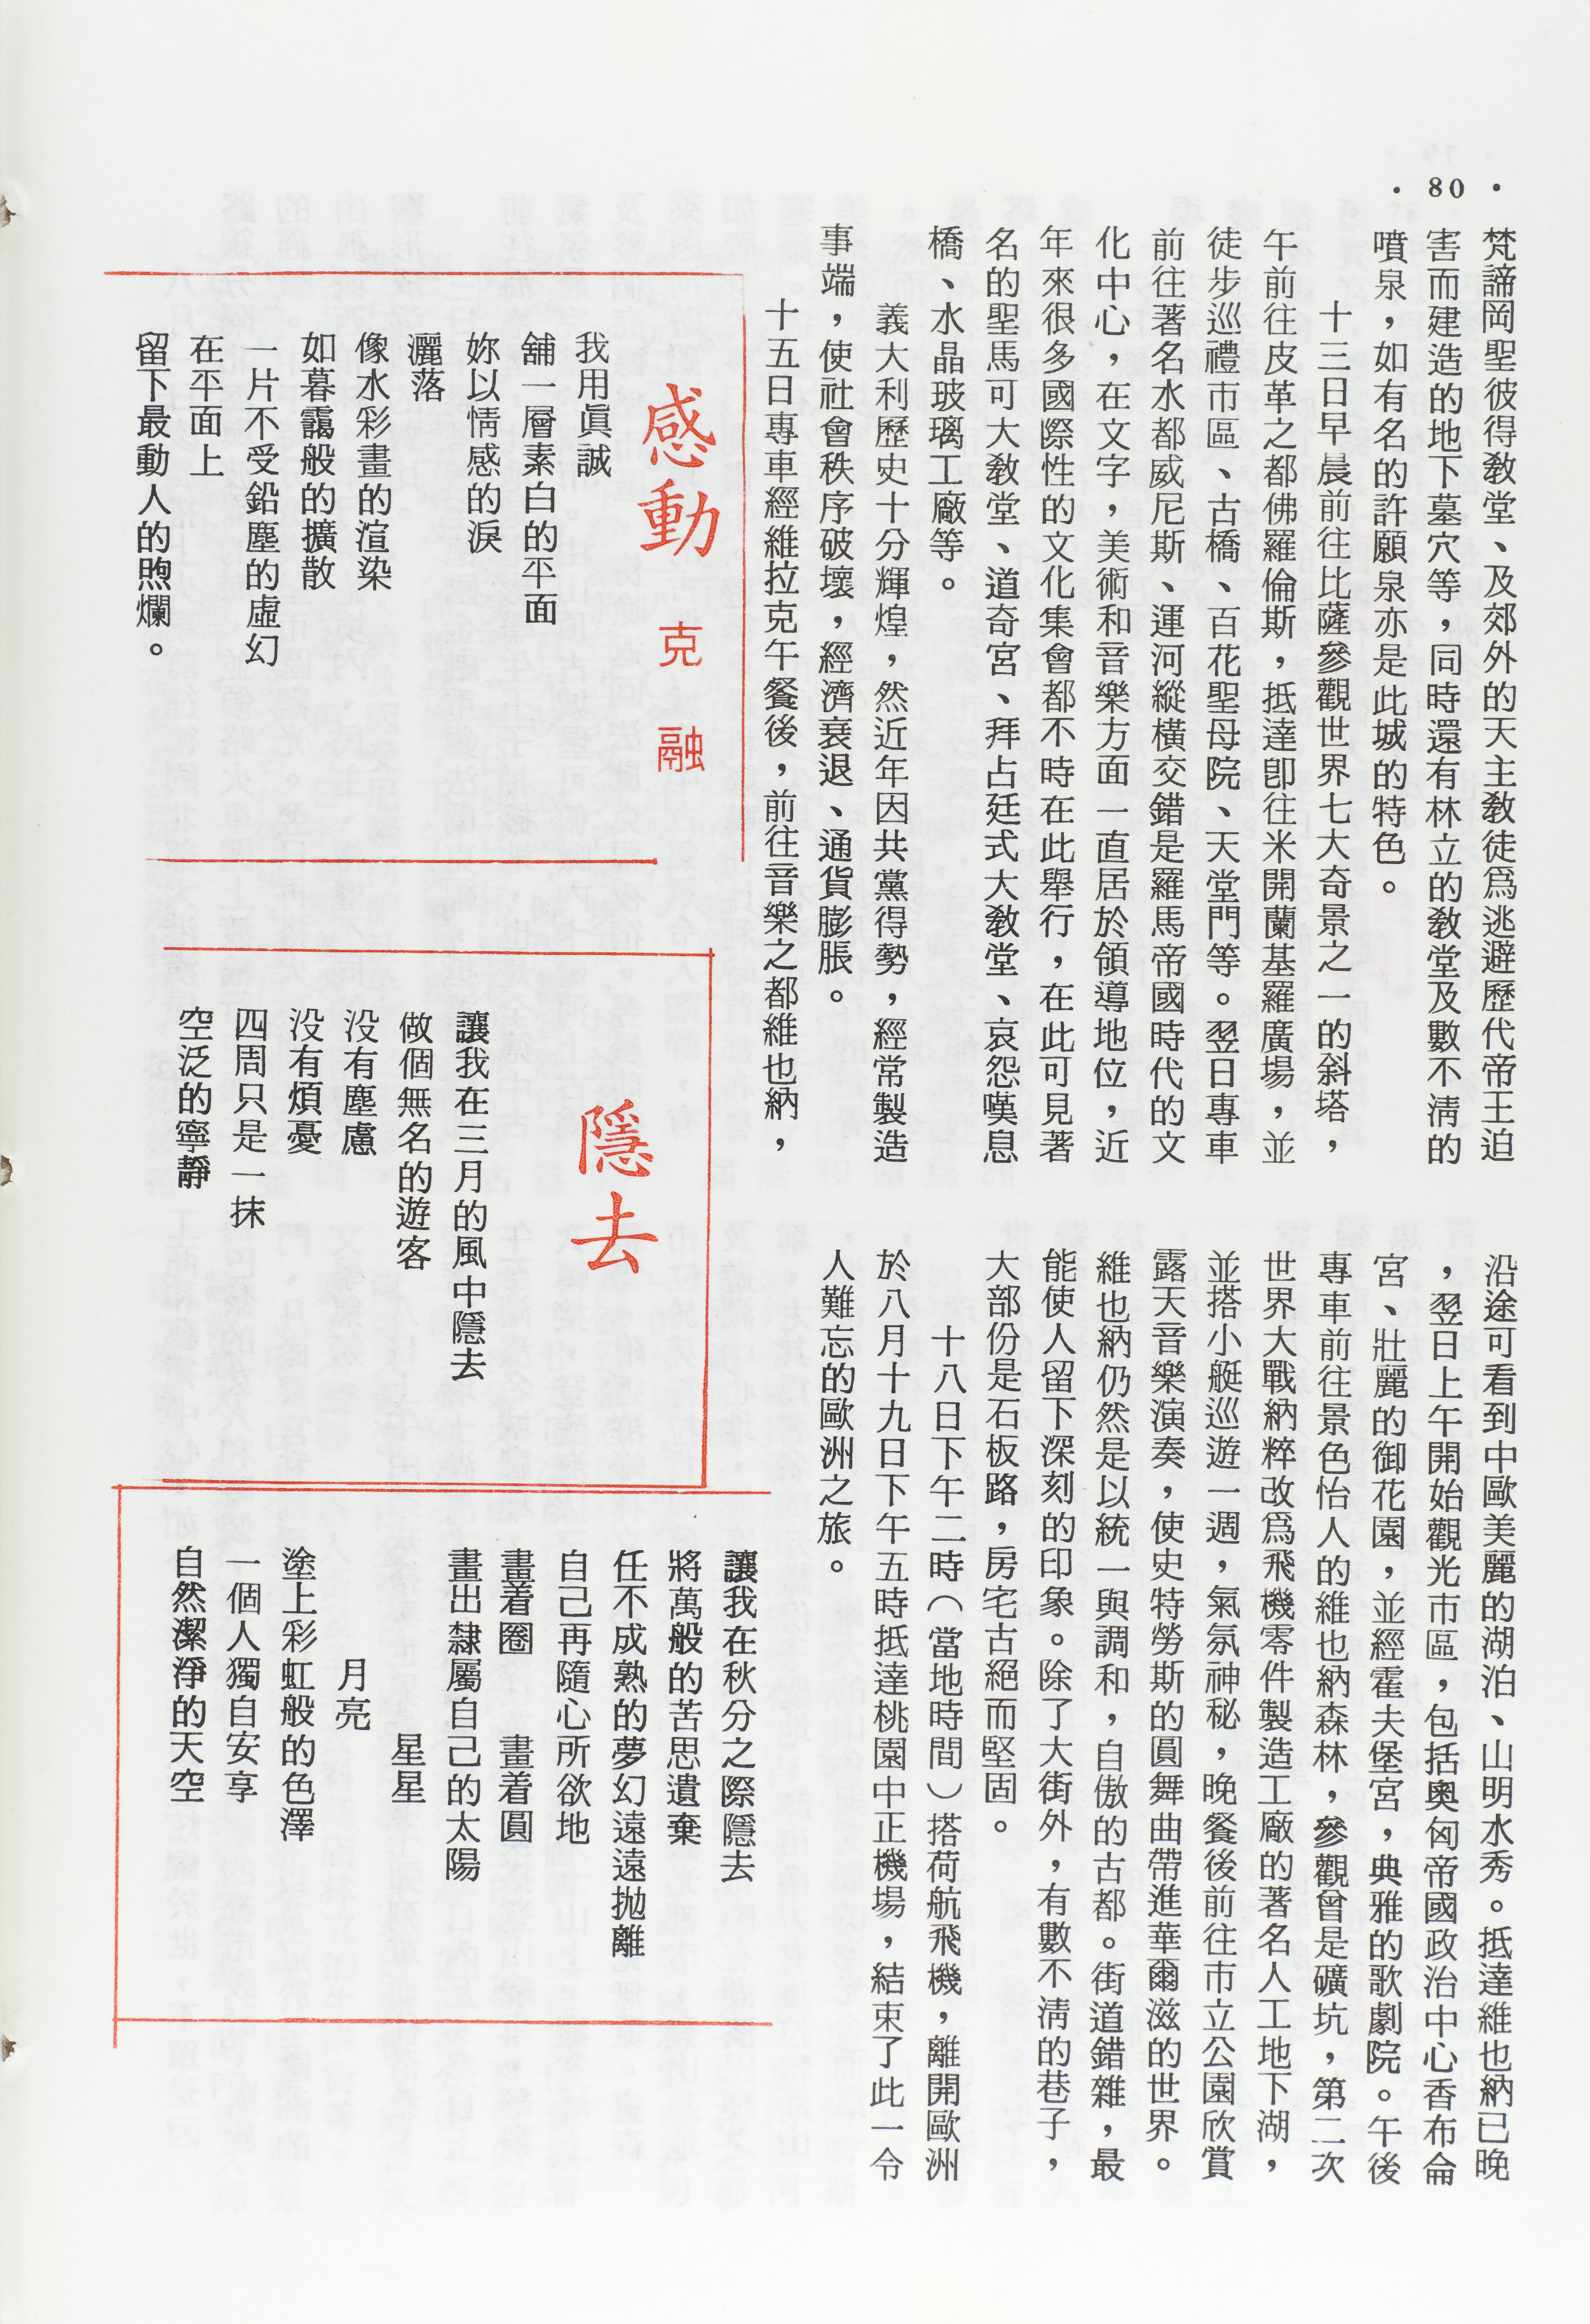 · 80 ·
梵諦岡聖彼得教堂、及郊外的天主教徒爲逃避歷代帝王迫
害而建造的地下墓穴等，同時還有林立的教堂及數不清的
噴泉，如有名的許願泉亦是此城的特色。
十三日早晨前往比薩參觀世界七大奇景之一的斜塔，
午前往皮革之都佛羅倫斯，抵達卽往米開蘭基羅廣場，並
徒步巡禮市區、古橋、百花聖母院、天堂門等。翌日專車
前往著名水都威尼斯、運河縱橫交錯是羅馬帝國時代的文
化中心，在文字，美術和音樂方面一直居於領導地位，近
年來很多國際性的文化集會都不時在此舉行，在此可見著
名的聖馬可大教堂、道奇宮、拜占廷式大教堂、哀怨嘆息
橋、水晶玻璃工廠等。
義大利歷史十分輝煌，然近年因共黨得勢，經常製造
事端，使社會秩序破壞，經濟衰退、通貨膨脹。
十五日專車經維拉克午餐後，前往音樂之都維也納，
沿途可看到中歐美麗的湖泊、山明水秀。抵達維也納已晚
，翌日上午開始觀光市區，包括奧匈帝國政治中心香布侖
宮、壯麗的御花園，並經霍夫堡宮，典雅的歌劇院。午後
專車前往景色怡人的維也納森林，參觀曾是礦坑，第二次
世界大戰納粹改爲飛機零件製造工廠的著名人工地下湖，
並搭小艇巡遊一週，氣氛神秘，晚餐後前往市立公園欣賞
露天音樂演奏，使史特勞斯的圓舞曲帶進華爾滋的世界。
維也納仍然是以統一與調和，自傲的古都。街道錯雜，最
能使人留下深刻的印象。除了大街外，有數不清的巷子，
大部份是石板路，房宅古絕而堅固。
十八日下午二時（當地時間）搭荷航飛機，離開歐洲
於八月十九日下午五時抵達桃園中正機場，結束了此一令
人難忘的歐洲之旅。
感動
克融
我用眞誠
舖一層素白的平面
妳以情感的淚
灑落
像水彩畫的渲染
如暮靄般的擴散
一片不受鉛塵的虛幻
在平面上
留下最動人的煦爛。
隱去
讓我在三月的風中隱去
做個無名的遊客
没有塵慮
没有煩憂
四周只是一抹
空泛的寧靜
讓我在秋分之際隱去
將萬般的苦思遺棄
任不成熟的夢幻遠遠拋離
自己再隨心所欲地
畫着圈　畫着圓
畫出隸屬自己的太陽
星星
月亮
塗上彩虹般的色澤
一個人獨自安享
自然潔淨的天空